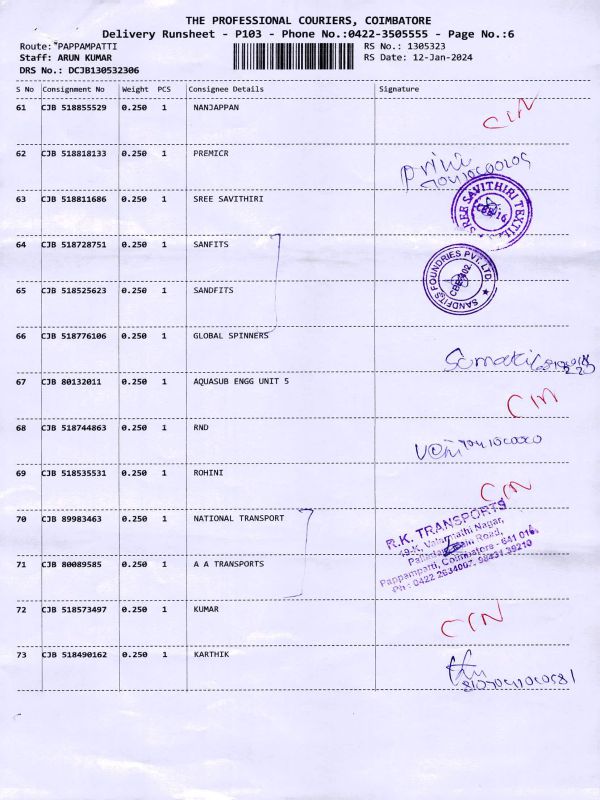 THE PROFESSIONAL COURIERS, COIMBATORE
Delivery Runsheet - P103 - Phone No.:0422-3505555 - Page No.:6
Route: PAPPAMPATTI
Staff: ARUN KUMAR
DRS No.: DCJB130532306
RS No.: 1305323
RS Date: 12-Jan-2024
S No Consignment No Weight PCS Consignee Details Signature
61 CJB 518855529 0.250 1 NANJAPPAN
62 CJB 518818133 0.250 1 PREMICR
63 CJB 518811686 0.250 1 SREE SAVITHIRI
SREE SAVITHIRI
64 CJB 518728751 0.250 1 SANFITS
SANDFITS FOUNDRIES PVT. LTD.
65 CJB 518525623 0.250 1 SANDFITS
66 CJB 518776106 0.250 1 GLOBAL SPINNERS
67 CJB 80132011 0.250 1 AQUASUB ENGG UNIT 5
68 CJB 518744863 0.250 1 RND
69 CJB 518535531 0.250 1 ROHINI
70 CJB 89983463 0.250 1 NATIONAL TRANSPORT
R.K. TRANSPORTS
Nagar,
Road,
Pappampatti, Coimbatore - 641 016.
71 CJB 80089585 0.250 1 A A TRANSPORTS
72 CJB 518573497 0.250 1 KUMAR
73 CJB 518490162 0.250 1 KARTHIK